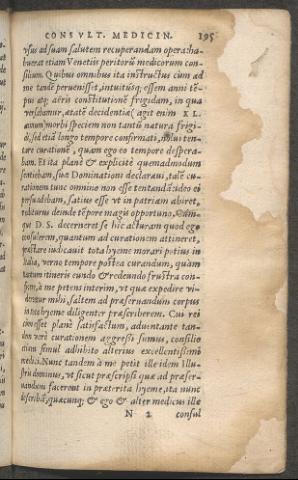 CONSVLT. MEDICIN. 195
vsus ad suam salutem recuperandam opera: ha-
buerat etiam Venetiis peritorũ medicorum con-
silium. Quibus omnibus ita instructus cùm ad
me tandẽ peruenisset, intuitúsq; essem anni tẽ-
pus atq; aëris constitutionẽ frigidam, in qua
versabamur, ætatẽ decidentis (agit enim XL
annum) morbi speciem non tantũ natura frigi-
di, sed etiã longo tempore confirmati, 
ture curationẽ, quàm ego eo tempore despera-
bam. Et ita planè & explicitè quemadmodum
sentiebam, suæ Dominationi declaraui, talẽ cu-
rationem tunc omnino non esse tentandã: ideo ei
persuadebam, satius esse vt in patriam abiret,
rediturus deinde tẽpore magis opportuno. Cùm-
que D. S. decerneret se hîc acturam quod ego
consulerem, quantum ad curationem attineret,
præstare iudicauit tota hyeme morari potius in
Italia, verno tempore postea curandum, quàm
tantum itineris eundo & redeundo frustra con-
ficere, à me petens interim, vt quæ expedire vi-
derentur mihi, saltem ad præseruandum corpus
in ea hyeme diligenter præscriberem. Cui rei
cùm esset planè satisfactum, aduentante tan-
dem veri curationem aggressi sumus, consilio
etiam simul adhibito alterius excellentissimi
medici. Nunc tandem à me petit ille idem Illu-
stris dominus, vt sicut præscripsi quæ ad præser-
uandum facerent in præterita hyeme, ita nunc
describã, quæcunq; & ego & alter medicus ille
N 2 consul